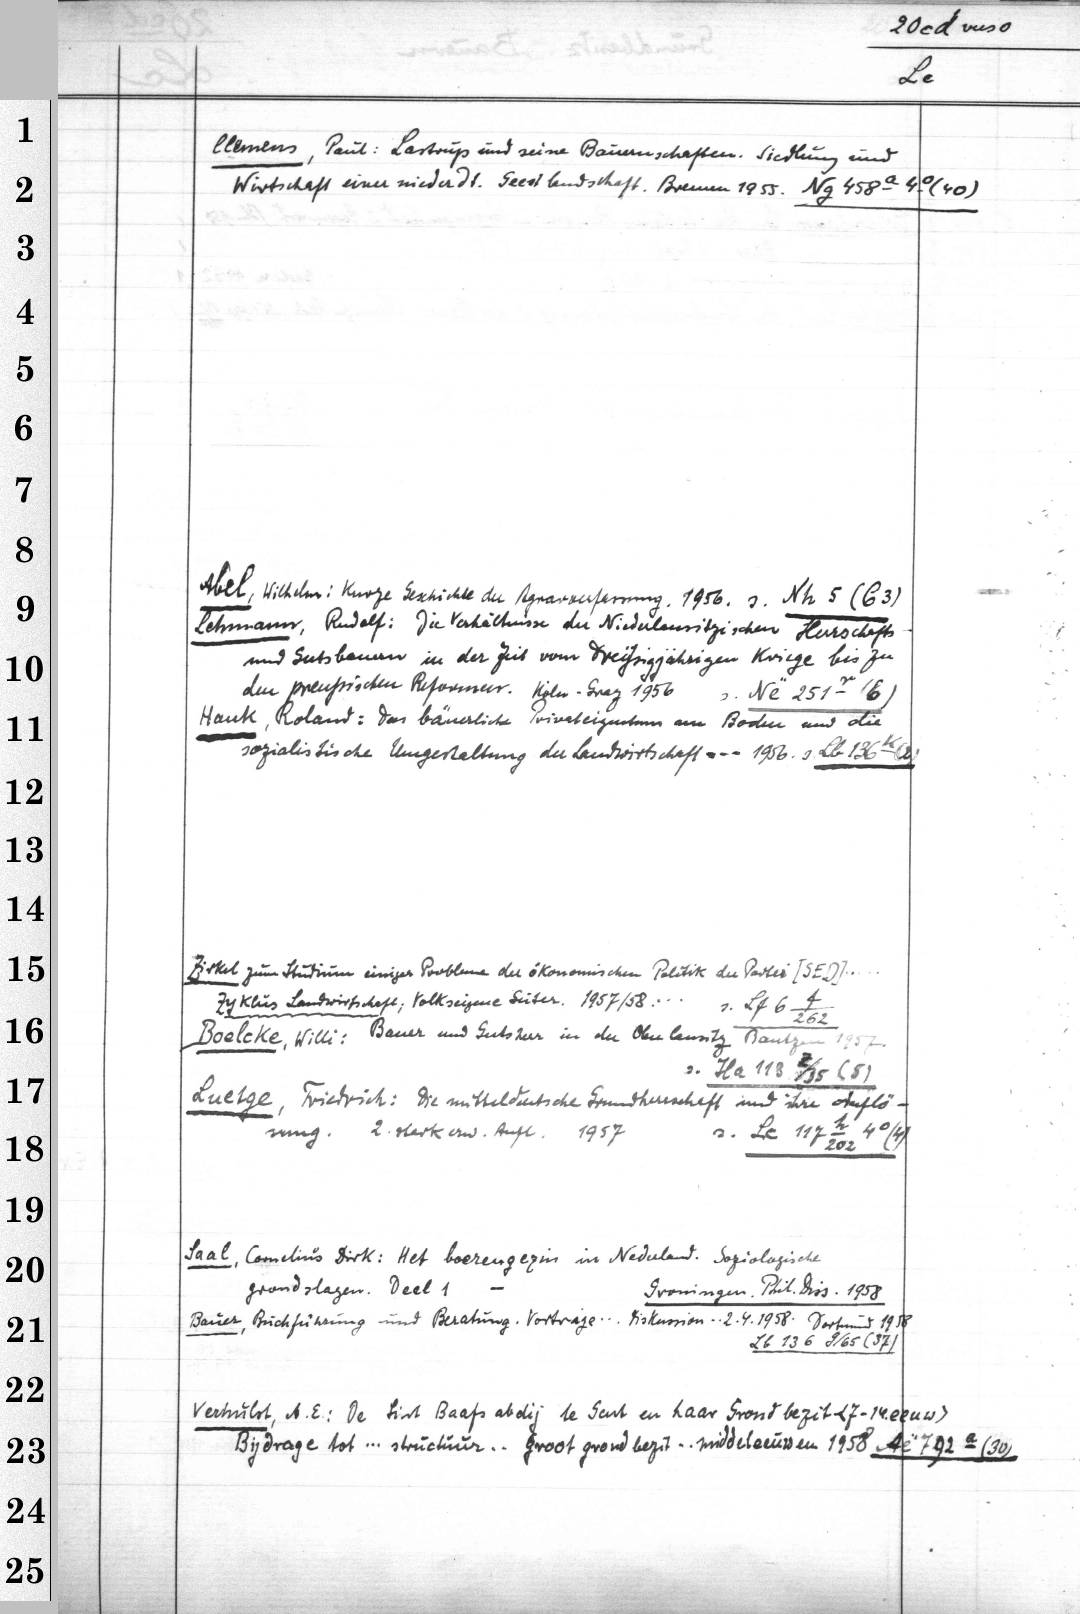 20cd verso
Le
1
2
3
4
5
6
7
8
9
10
11
12
13
14
15
16
17
18
19
20
21
22
23
24
25
Clemens, Paul: Lastrup und seine Bauernschaften. Siedlung und
Wirtschaft einer niederdt. Geestlandschaft. Bremen 1955. Ng 458 a 4o (40)
Abel, Wilhelm: Kurze Geschichte der Agrarverfassung. 1956. s. Nh 5 (63)
Lehmann, Rudolf: Die Verhältnisse der Niederlausitzischen Herrschafts
und Gutsbauern in der Zeit vom Dreißigjährigen Kriege bis zu
den preußischen Reformen. Köln-Graz 1956 s. Në 251 r (6)
Hauk, Roland: Das bäuerliche Privateigentum am Boden und die
sozialistische Umgestaltung der Landwirtschaft --- 1956. s. Lb 136
Zirkel zum Studium einiger Probleme der ökonomischen Politik der Partei [SED].....
Zyklus Landwirtschaft; Volkseigene Güter. 1957/58... s. Lf 6 f/262
Boelcke, Willi: Bauer und Gutsherr in der Oberlausitz Bautzen 1957.
s. Ha 113 z/35 (5)
Luetge, Friedrich: Die mitteldeutsche Grundherrschaft und ihre Auflö-
sung. 2. stark erw. Aufl. 1957 s. Le 117 h/202 4o (4)
Saal, Cornelius Dirk: Het boerengezin in Nederland. Soziologische
grondslagen. Deel 1 - Groningen. Phil. Diss. 1958
Bauer, Buchführung und Beratung. Vorträge... Diskussion ..2.4.1958. Dortmund 1958
Lb 136 g/65 (37)
Verhulst, A.E.: De Sint Baafs abdij te Gent en haar Grondbezit <7-14. eeuw>
Bijdrage tot ... structuur .. Groot grondbezit .. middeleeuwen 1958 Aë 792 a (30)